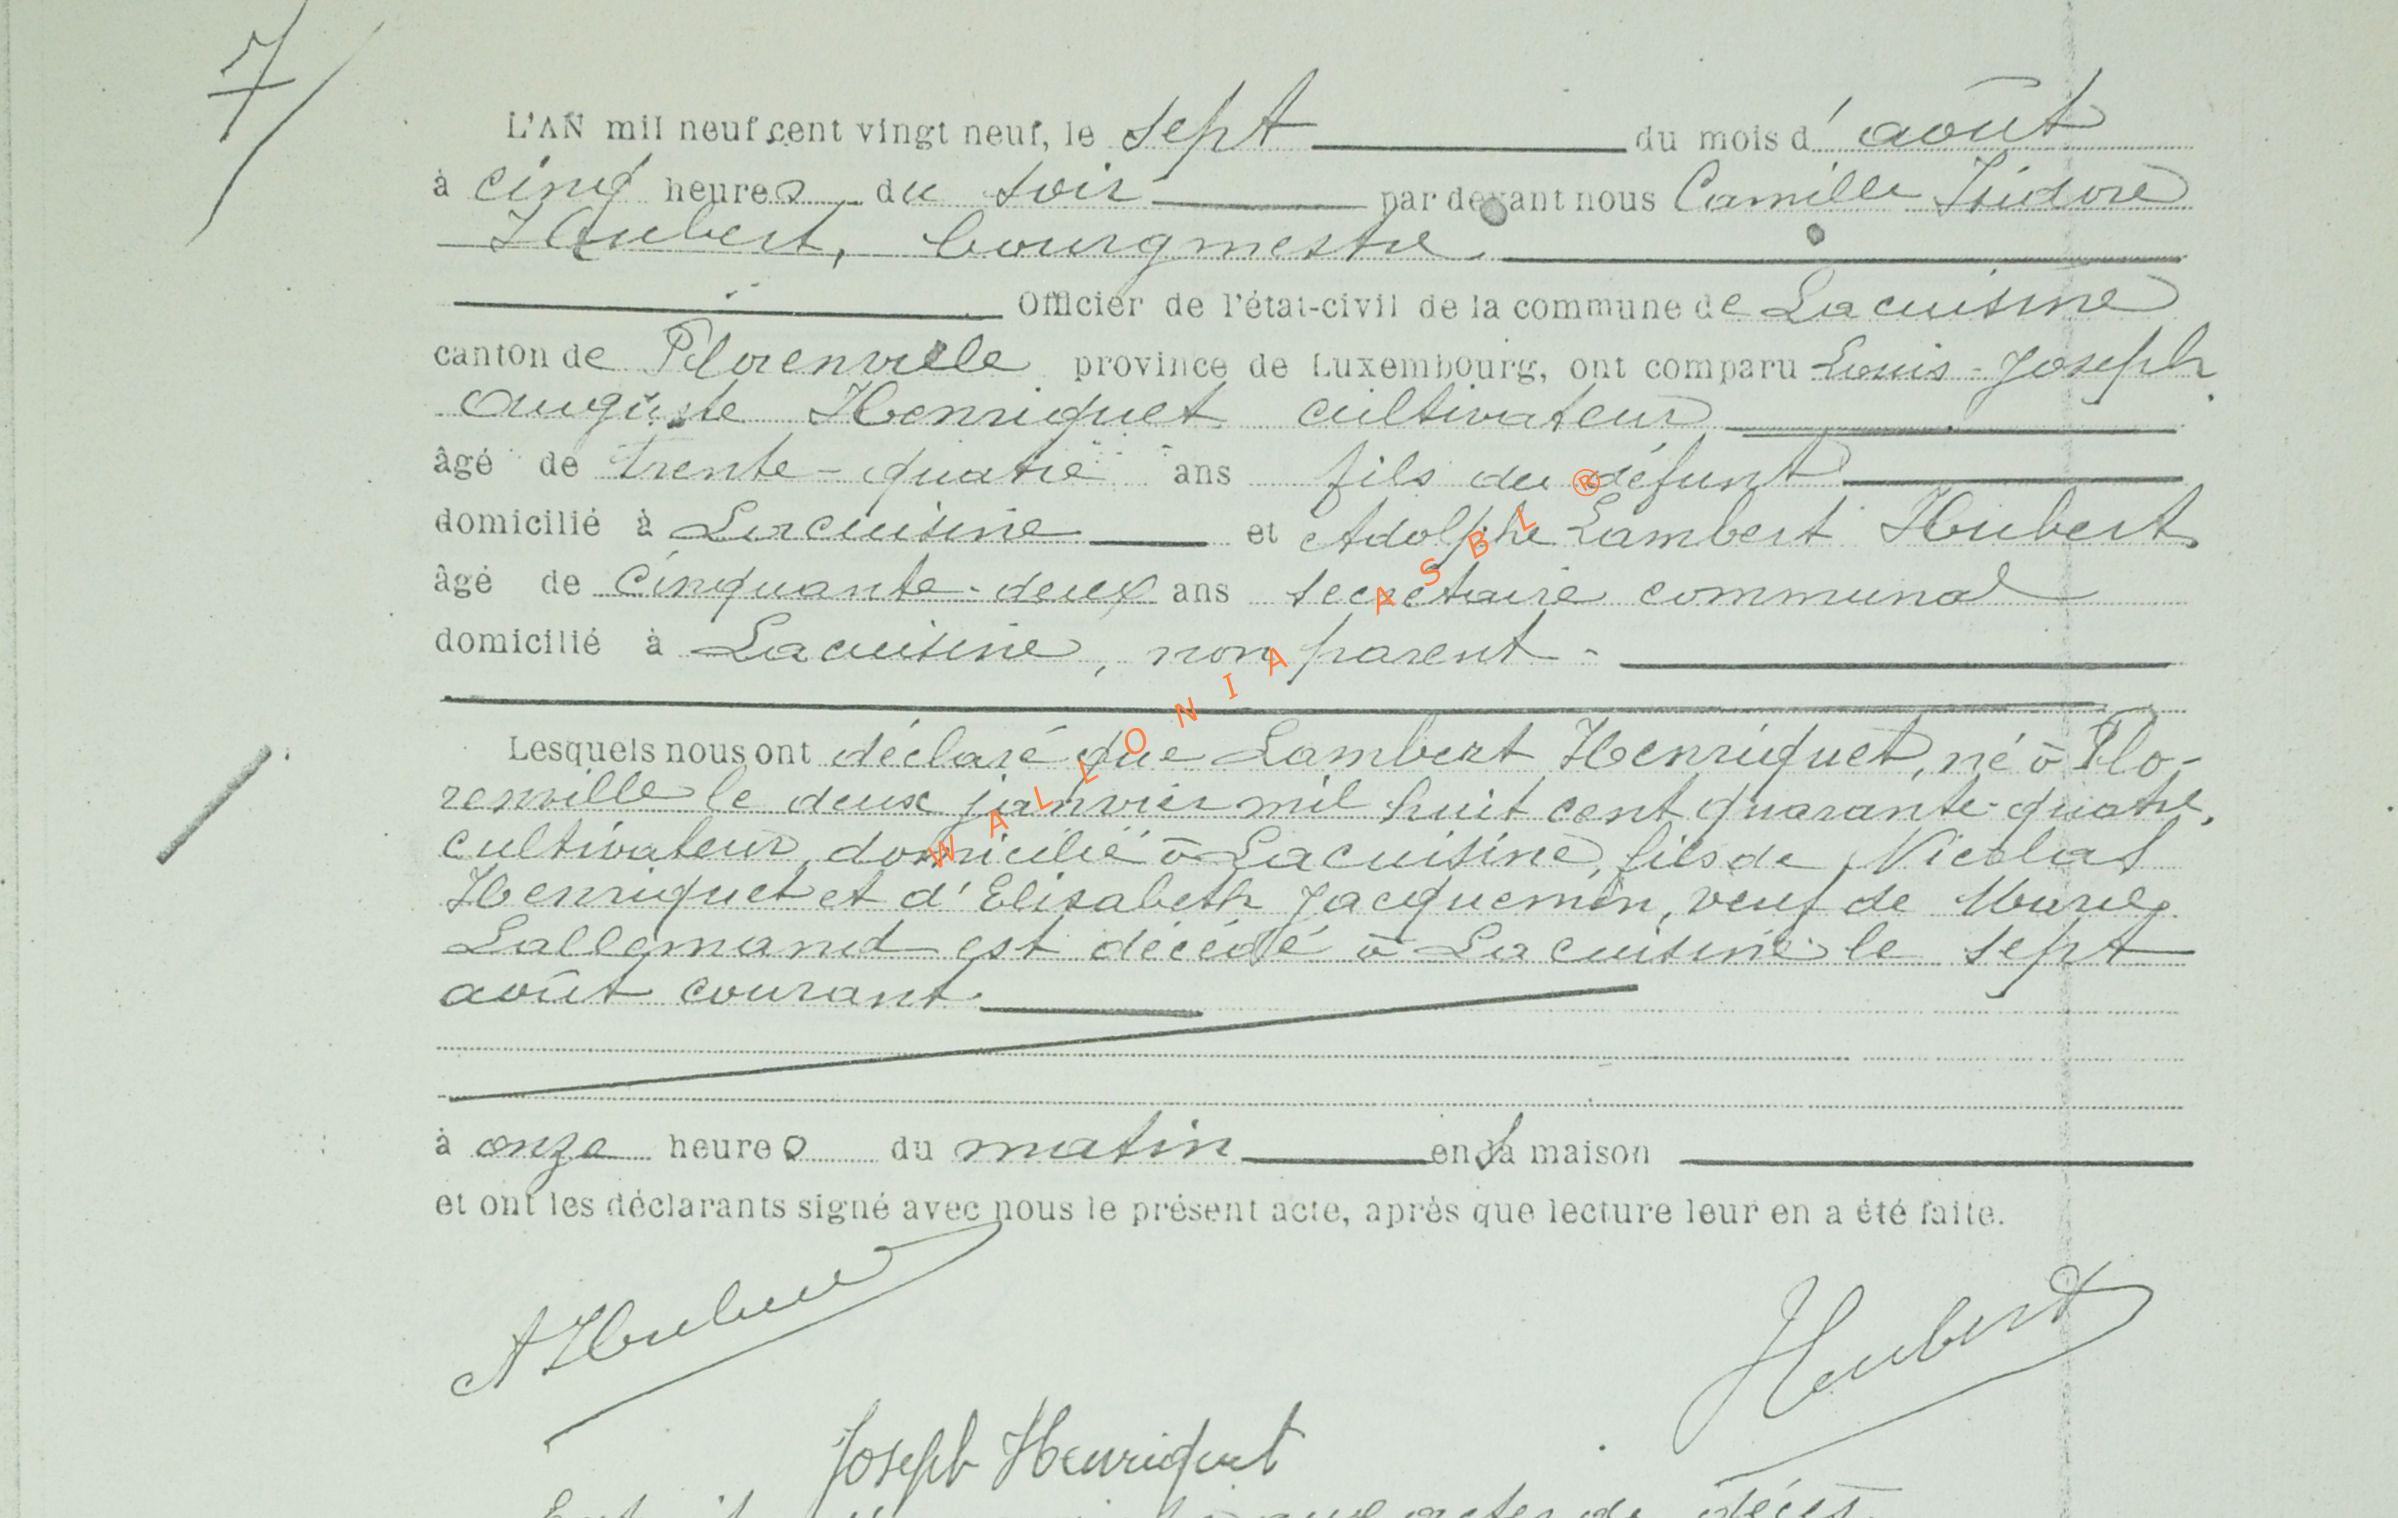 7/
L'AN mil neuf cent vingt neuf, le sept du mois d'août
à cinq heures du soir par devant nous Camille Isidore
Hubert, bourgmestre
Officier de l'état-civil de la commune de Lacuisine
canton de Florenville province de Luxembourg, ont comparu Louis-Joseph
Auguste Henriquet cultivateur
âgé de trente-quatre ans fils du défunt
domicilié à Lacuisine et Adolphe Lambert Hubert
âgé de cinquante-deux ans secrétaire communal
domicilié à Lacuisine, non parent.
Lesquels nous ont déclaré que Lambert Henriquet, né à Flo-
renville le deux janvier mil huit cent quarante-quatre,
cultivateur, domicilié à Lacuisine, fils de Nicolas
Henriquet et d'Elisabeth Jacquemin, veuf de Marie
Lallemand est décédé à Lacuisine le sept
août courant.
à onze heures du matin en sa maison
et ont les déclarants signé avec nous le présent acte, après que lecture leur en a été faite.
A Hubert
Hubert
Joseph Henriquet
actes de décès.
WALLONIA ASBL ®